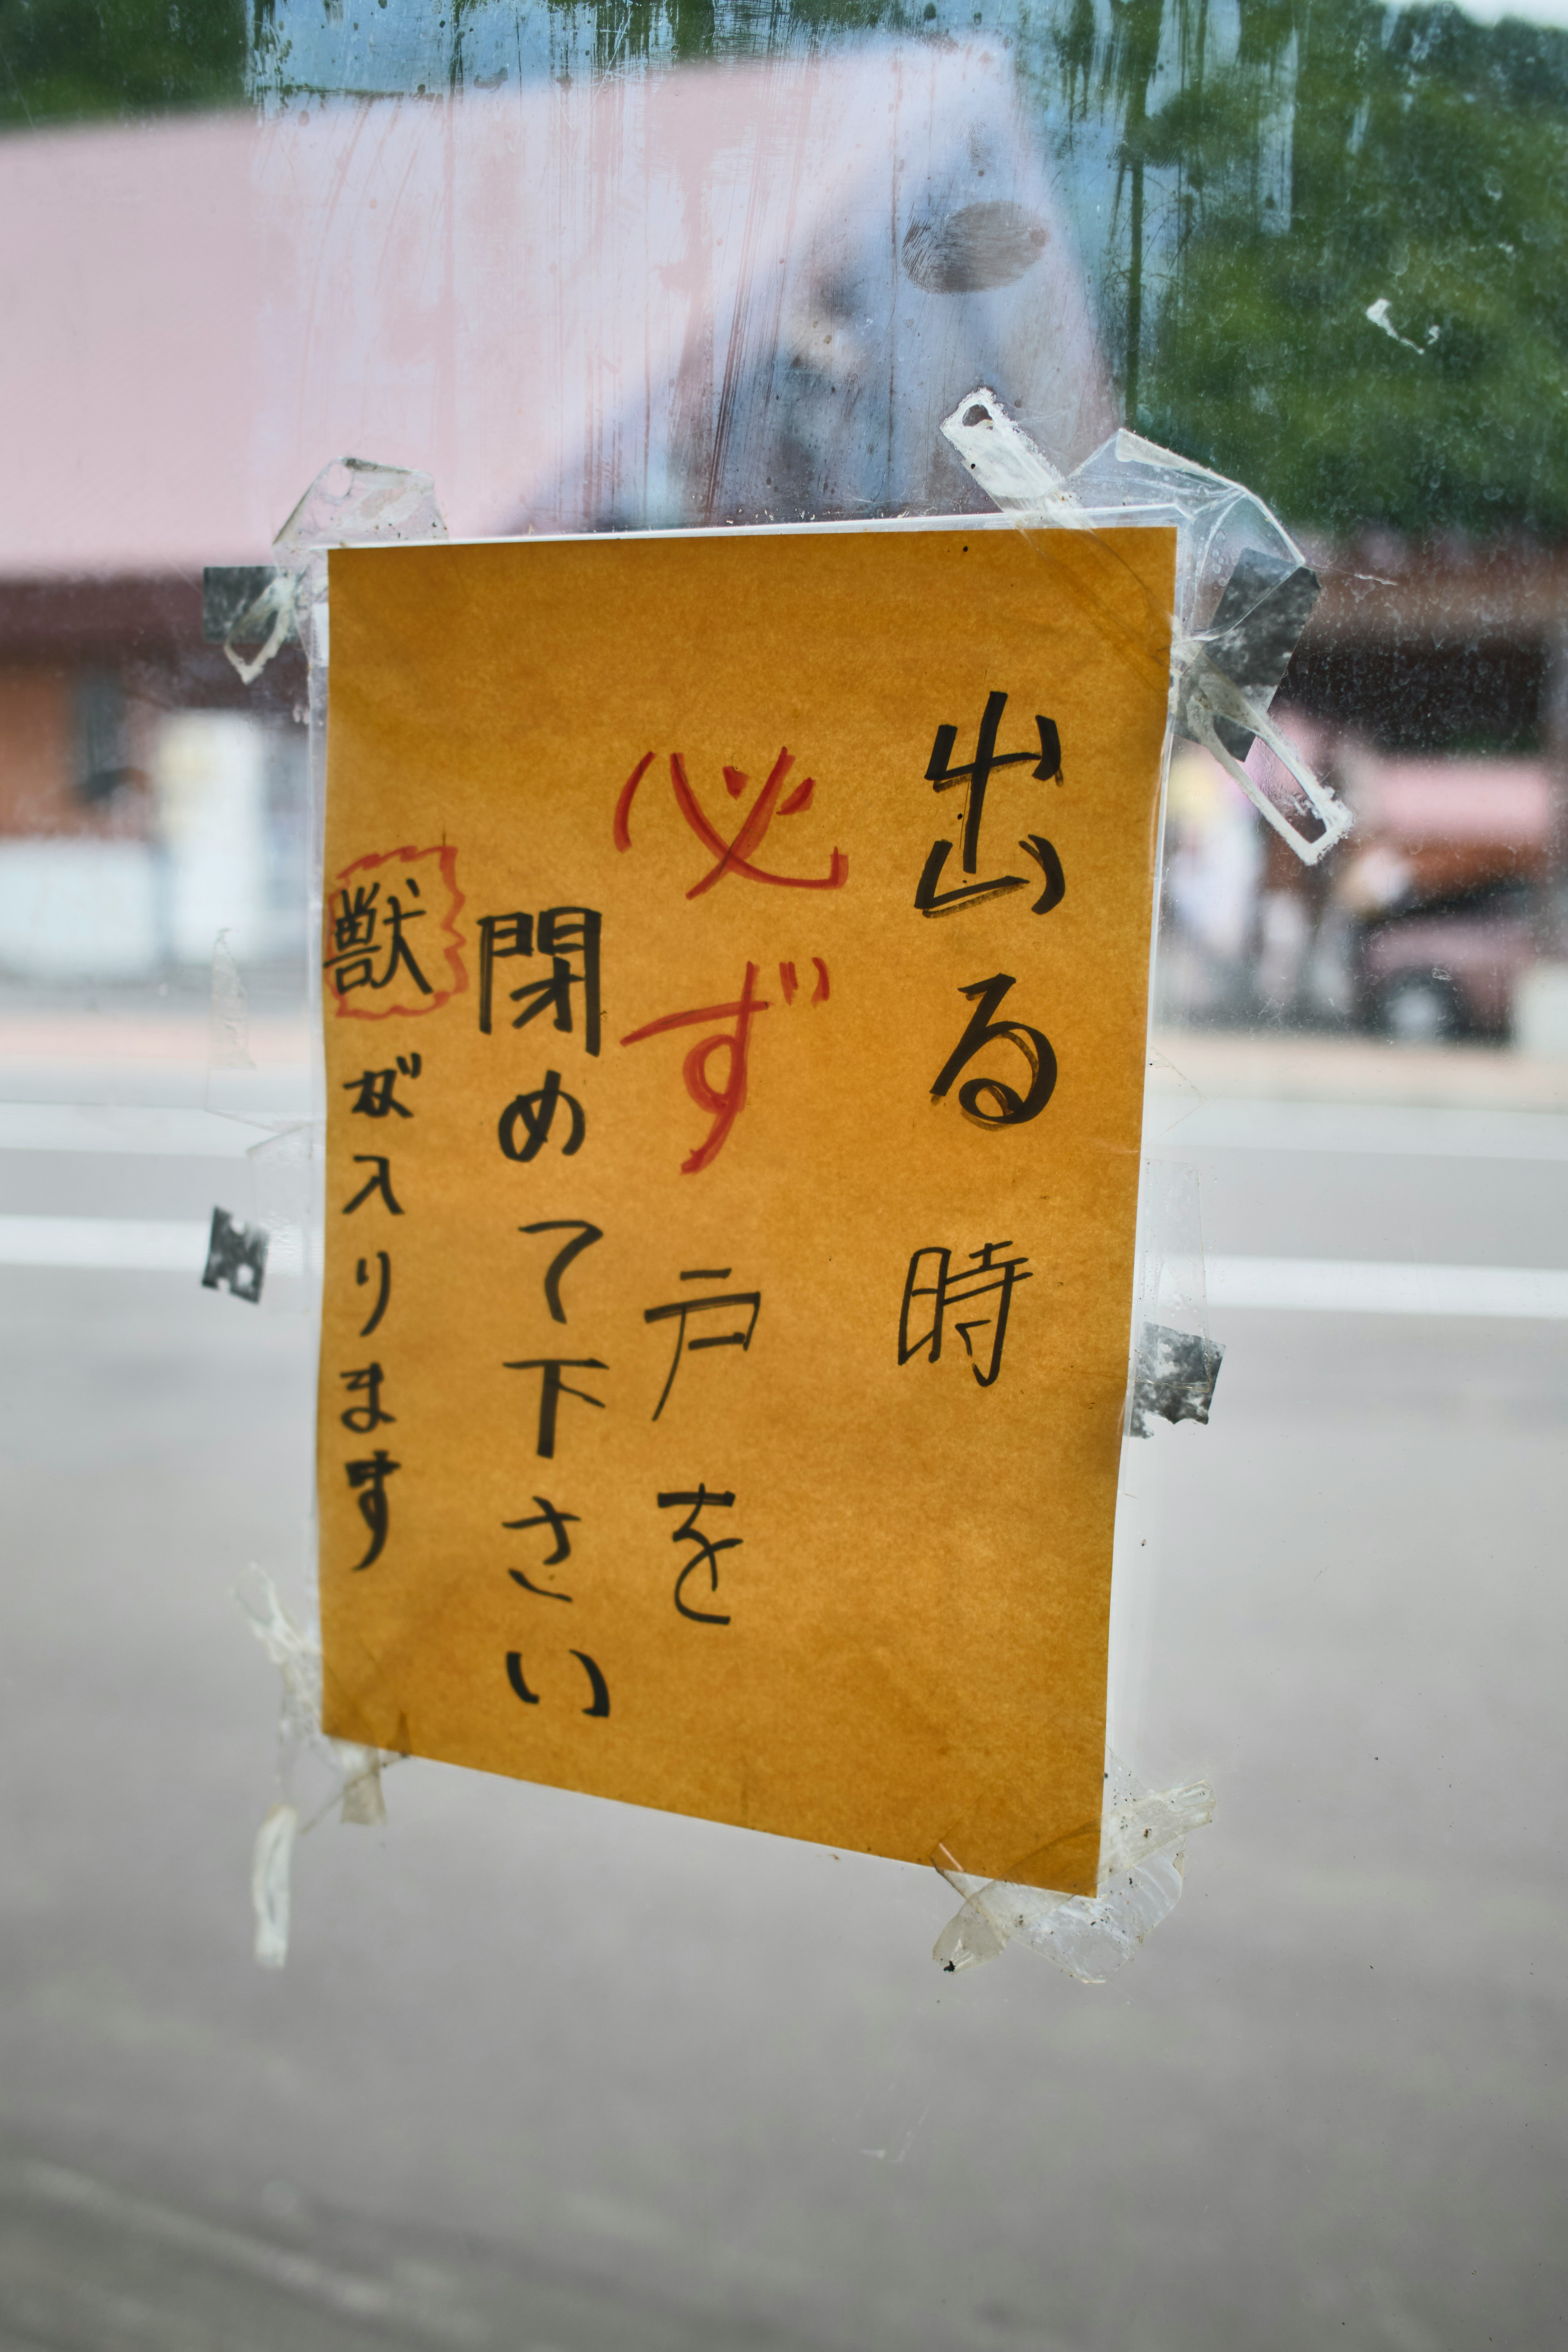 出る時
必ず戸を
閉めて下さい
獣が入ります